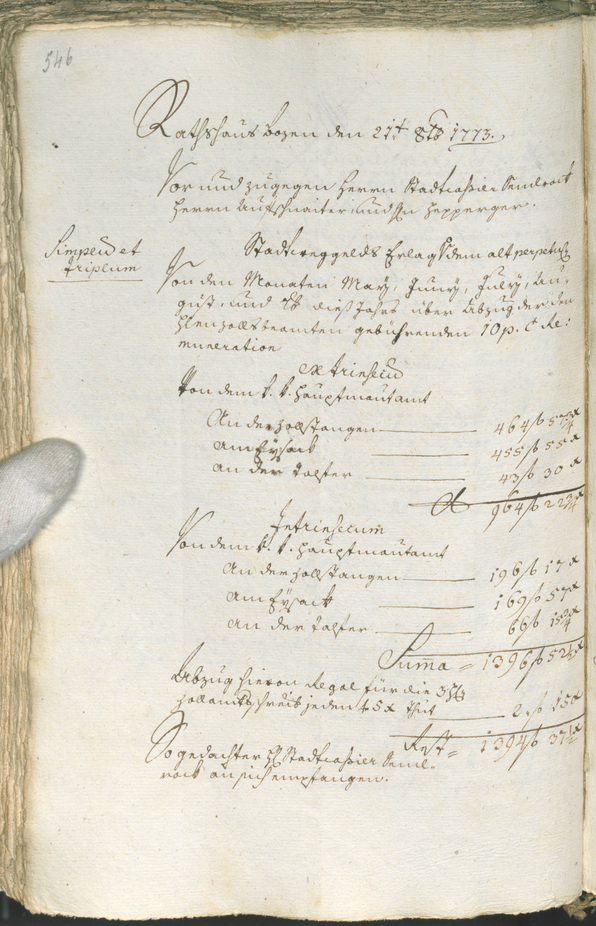 546
Rathshaus Bozen den 27t 8tb 1773.
Vor und zugegen Herrn Stadtcassier Semlrock
Herrn Aufschnaiter und H Hepperger.
Simplum et
triplum
Stadtweggelds Erlags dem alt perpetuis
Von den Monaten May, Juny, July, Au-
gust, und dieß Jahrs über Abzug der den
H zollsbeamten gebührenden 10 p. Ct Re:
muneration
Extrinsecum
Von dem k. k. Hauptmautamt
An der zollstangen 464 f 57 x
Am Eysack 455 f 55 x
An der Talfer 43 f 30 x
964 f 22 3/4 x
Intrinsecum
Von dem k. k. Hauptmautamt
An der zollstangen 196 f 17 x
Am Eysack 169 f 57 x
An der Talfer 66 f 15 x
Summa = 1396 f 52 x
Abzug hievon Regal für die
zollamts jeden 45 x thut 2 f 15 x
Rest = 1394 f 37 x
So gedachter H Stadtcassier Seml-
rock an sich empfangen.